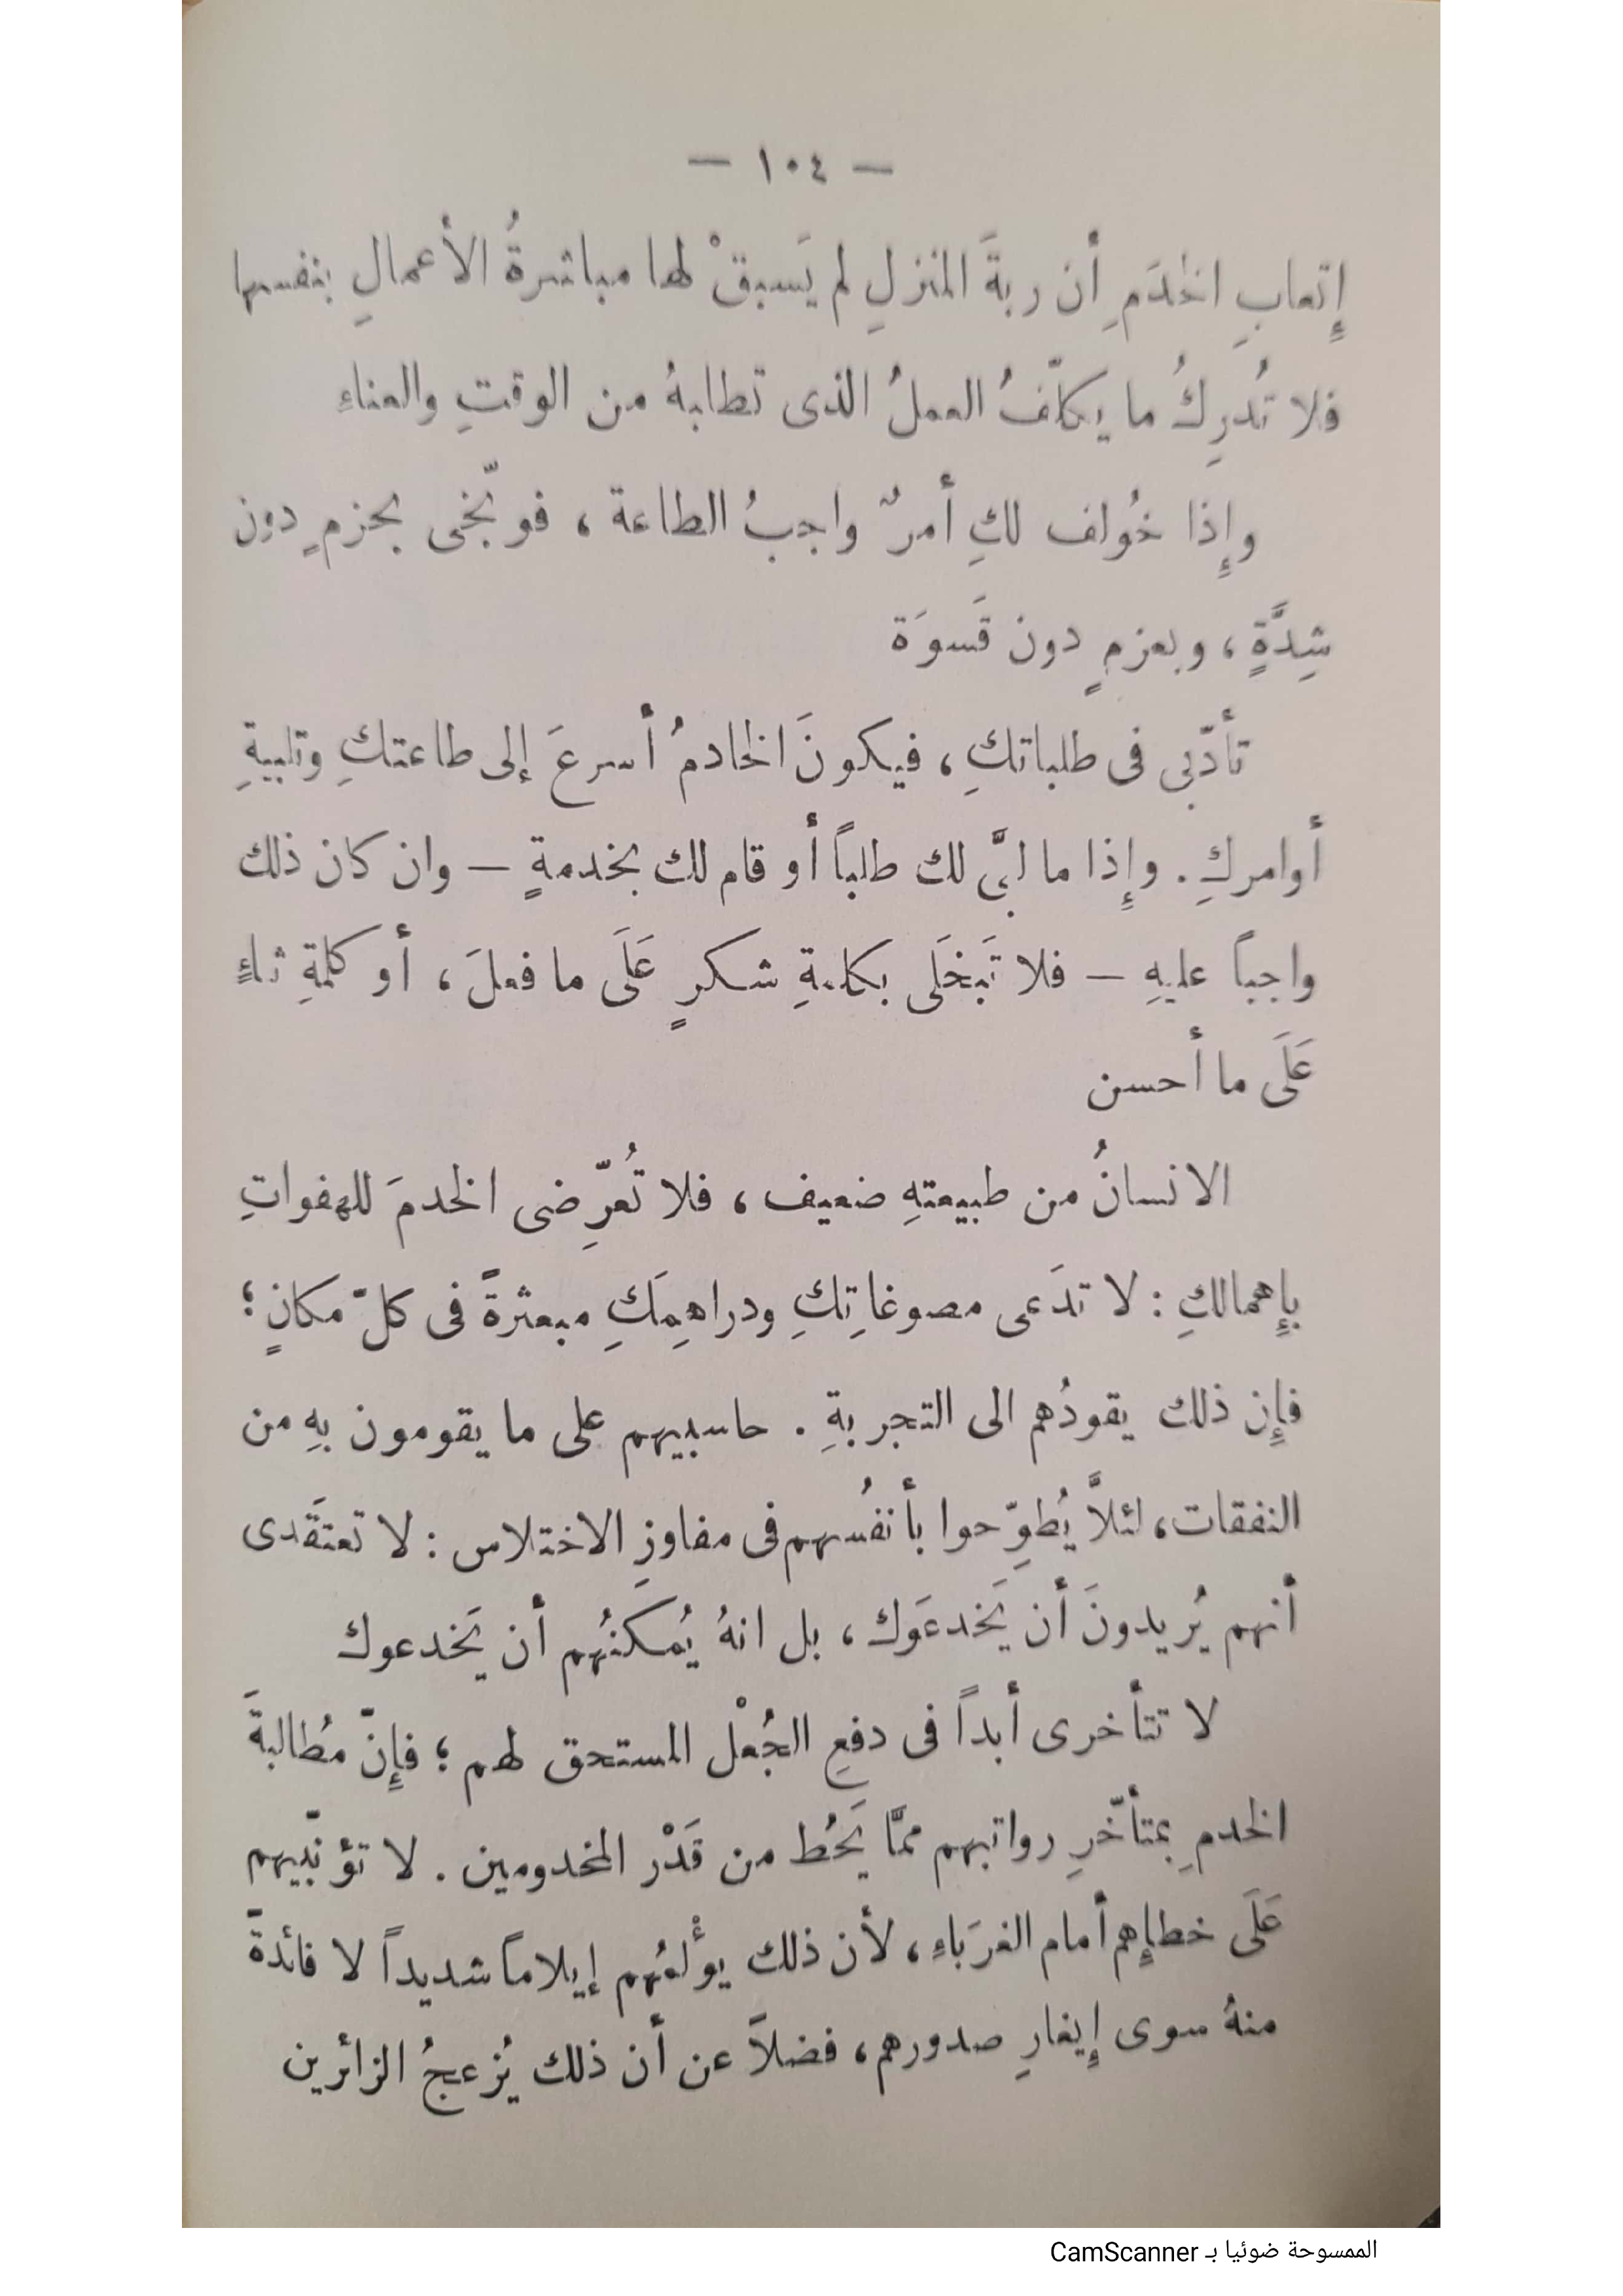 — ١٠٤ —
إِتعابِ الخدَمِ أن ربةَ المنزلِ لم يَسبقْ لها مباشرةُ الأعمالِ بنفسها
فلا تُدرِكُ ما يكلّفُ العملُ الذى تطلبهُ من الوقتِ والعناءِ
وإِذا خُولف لكِ أمرٌ واجبُ الطاعة ، فوبّخى بحزمٍ دون
شِدَّةٍ ، وبعزمٍ دون قَسوَة
تأدّبى فى طلباتكِ ، فيكونَ الخادمُ أسرعَ إلى طاعتكِ وتلبيةِ
أوامركِ . وإِذا ما لبَّى لك طلباً أو قام لك بخدمةٍ — وان كان ذلك
واجباً عليهِ — فلا تَبخَلَى بكلمةِ شكرٍ عَلَى ما فعلَ ، أو كلمةِ ثناءٍ
عَلَى ما أحسن
الانسانُ من طبيعتهِ ضعيف ، فلا تُعرِّضى الخدمَ للهفواتِ
بإِهمالكِ : لا تدَعى مصوغاتِكِ ودراهِمَكِ مبعثرةً فى كلّ مكانٍ ؛
فإِن ذلك يقودُهم الى التجربةِ . حاسبيهم على ما يقومون بهِ من
النفقات ، لئلاَّ يُطوِّحوا بأنفُسهم فى مفاوزِ الاختلاس : لا تعتقَدى
أنهم يُريدونَ أن يَخدعَوك ، بل انهُ يُمكنُهم أن يَخدعوك
لا تتأخرى أبداً فى دفعِ الجُعْل المستحق لهم ؛ فإِنّ مُطالبةَ
الخدمِ بمتأخّرِ رواتبهم ممَّا يَحُط من قَدْر المخدومين . لا تؤنّبيهم
عَلَى خطاِهم أمام الغرَباءِ ، لأن ذلك يؤْلمُهم إيلاماً شديداً لا فائدةَ
منهُ سوى إِيغارِ صدورهم ، فضلاً عن أن ذلك يُزعجُ الزائرين
الممسوحة ضوئيا بـ CamScanner